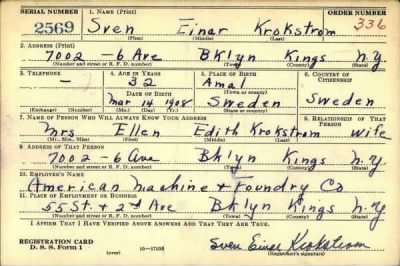 SERIAL NUMBER 1. NAME (Print) ORDER NUMBER
2569 Sven Einar Krokstrom 336
(First) (Middle) (Last)
2. ADDRESS (Print)
7002 - 6 Ave Bklyn Kings N.Y.
(Number and street or R. F. D. number) (Town) (County) (State)
3. TELEPHONE 4. AGE IN YEARS 5. PLACE OF BIRTH 6. COUNTRY OF CITIZENSHIP
- 32 Amal
DATE OF BIRTH (Town or county)
Mar 14 1908 Sweden Sweden
(Exchange) (Number) (Mo.) (Day) (Yr.) (State or country)
7. NAME OF PERSON WHO WILL ALWAYS KNOW YOUR ADDRESS 8. RELATIONSHIP OF THAT PERSON
Mrs Ellen Edith Krokstrom Wife
(Mr., Mrs., Miss) (First) (Middle) (Last)
9. ADDRESS OF THAT PERSON
7002 - 6 Ave Bklyn Kings N.Y.
(Number and street or R. F. D. number) (Town) (County) (State)
10. EMPLOYER'S NAME
American Machine & Foundry Co
11. PLACE OF EMPLOYMENT OR BUSINESS
55 St. & 2nd Ave Bklyn Kings N.Y.
(Number and street or R. F. D. number) (Town) (County) (State)
I AFFIRM THAT I HAVE VERIFIED ABOVE ANSWERS AND THAT THEY ARE TRUE.
REGISTRATION CARD
D. S. S. Form 1 (over) Sven Einar Krokstrom
(Registrant's signature)